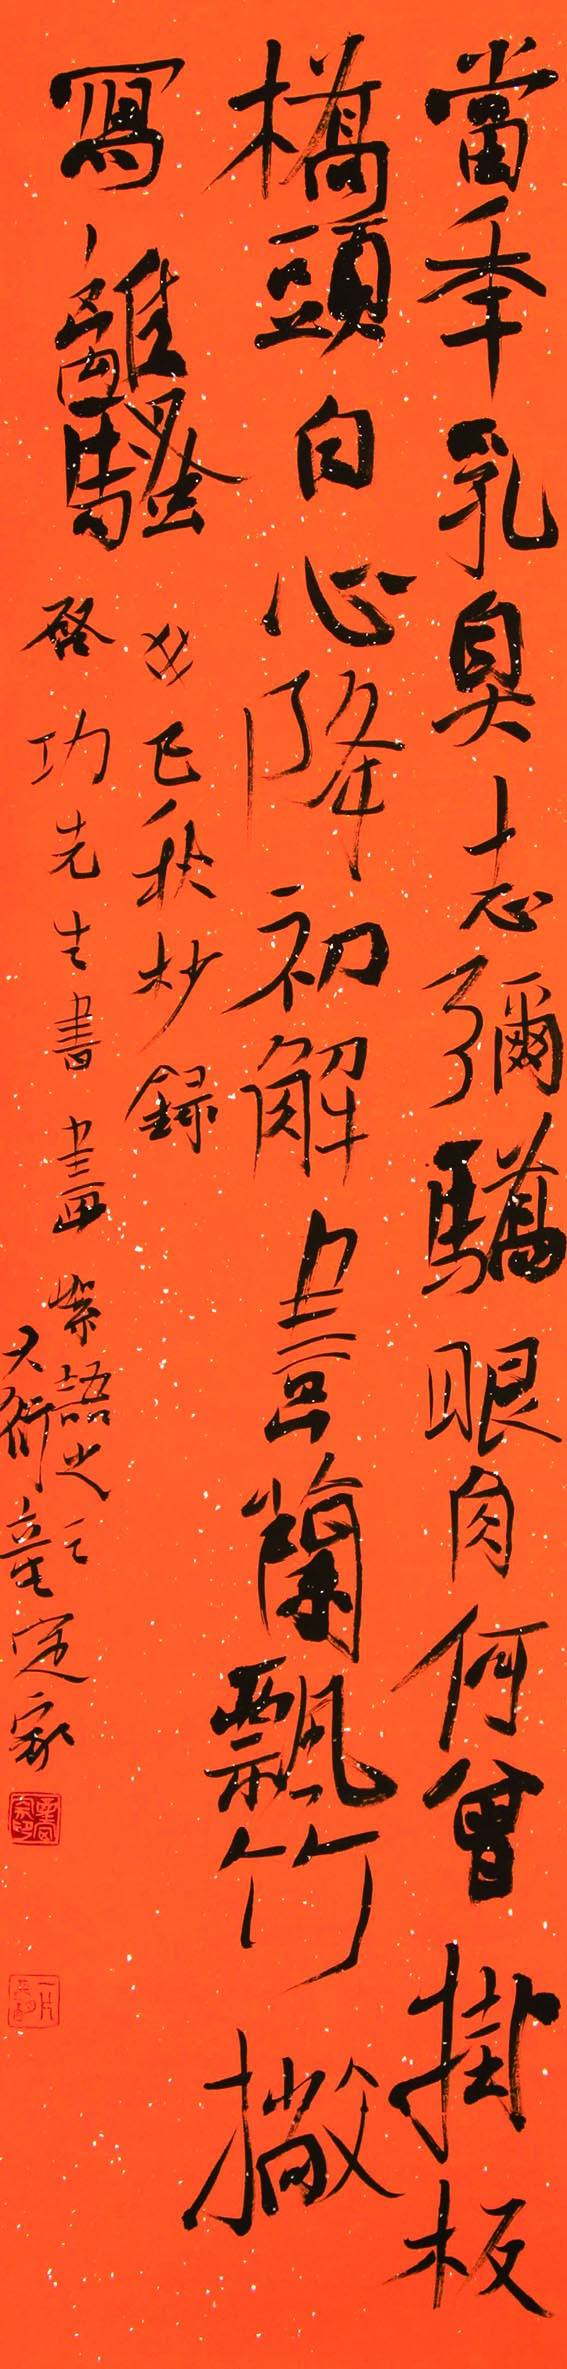 當年乳臭志彌驕眼角何曾掛板
橋頭白心降初解畫蘭飄竹撇
寫離騷
癸巳秋杪錄
啓功先生書畫絮語之
大衍童定家